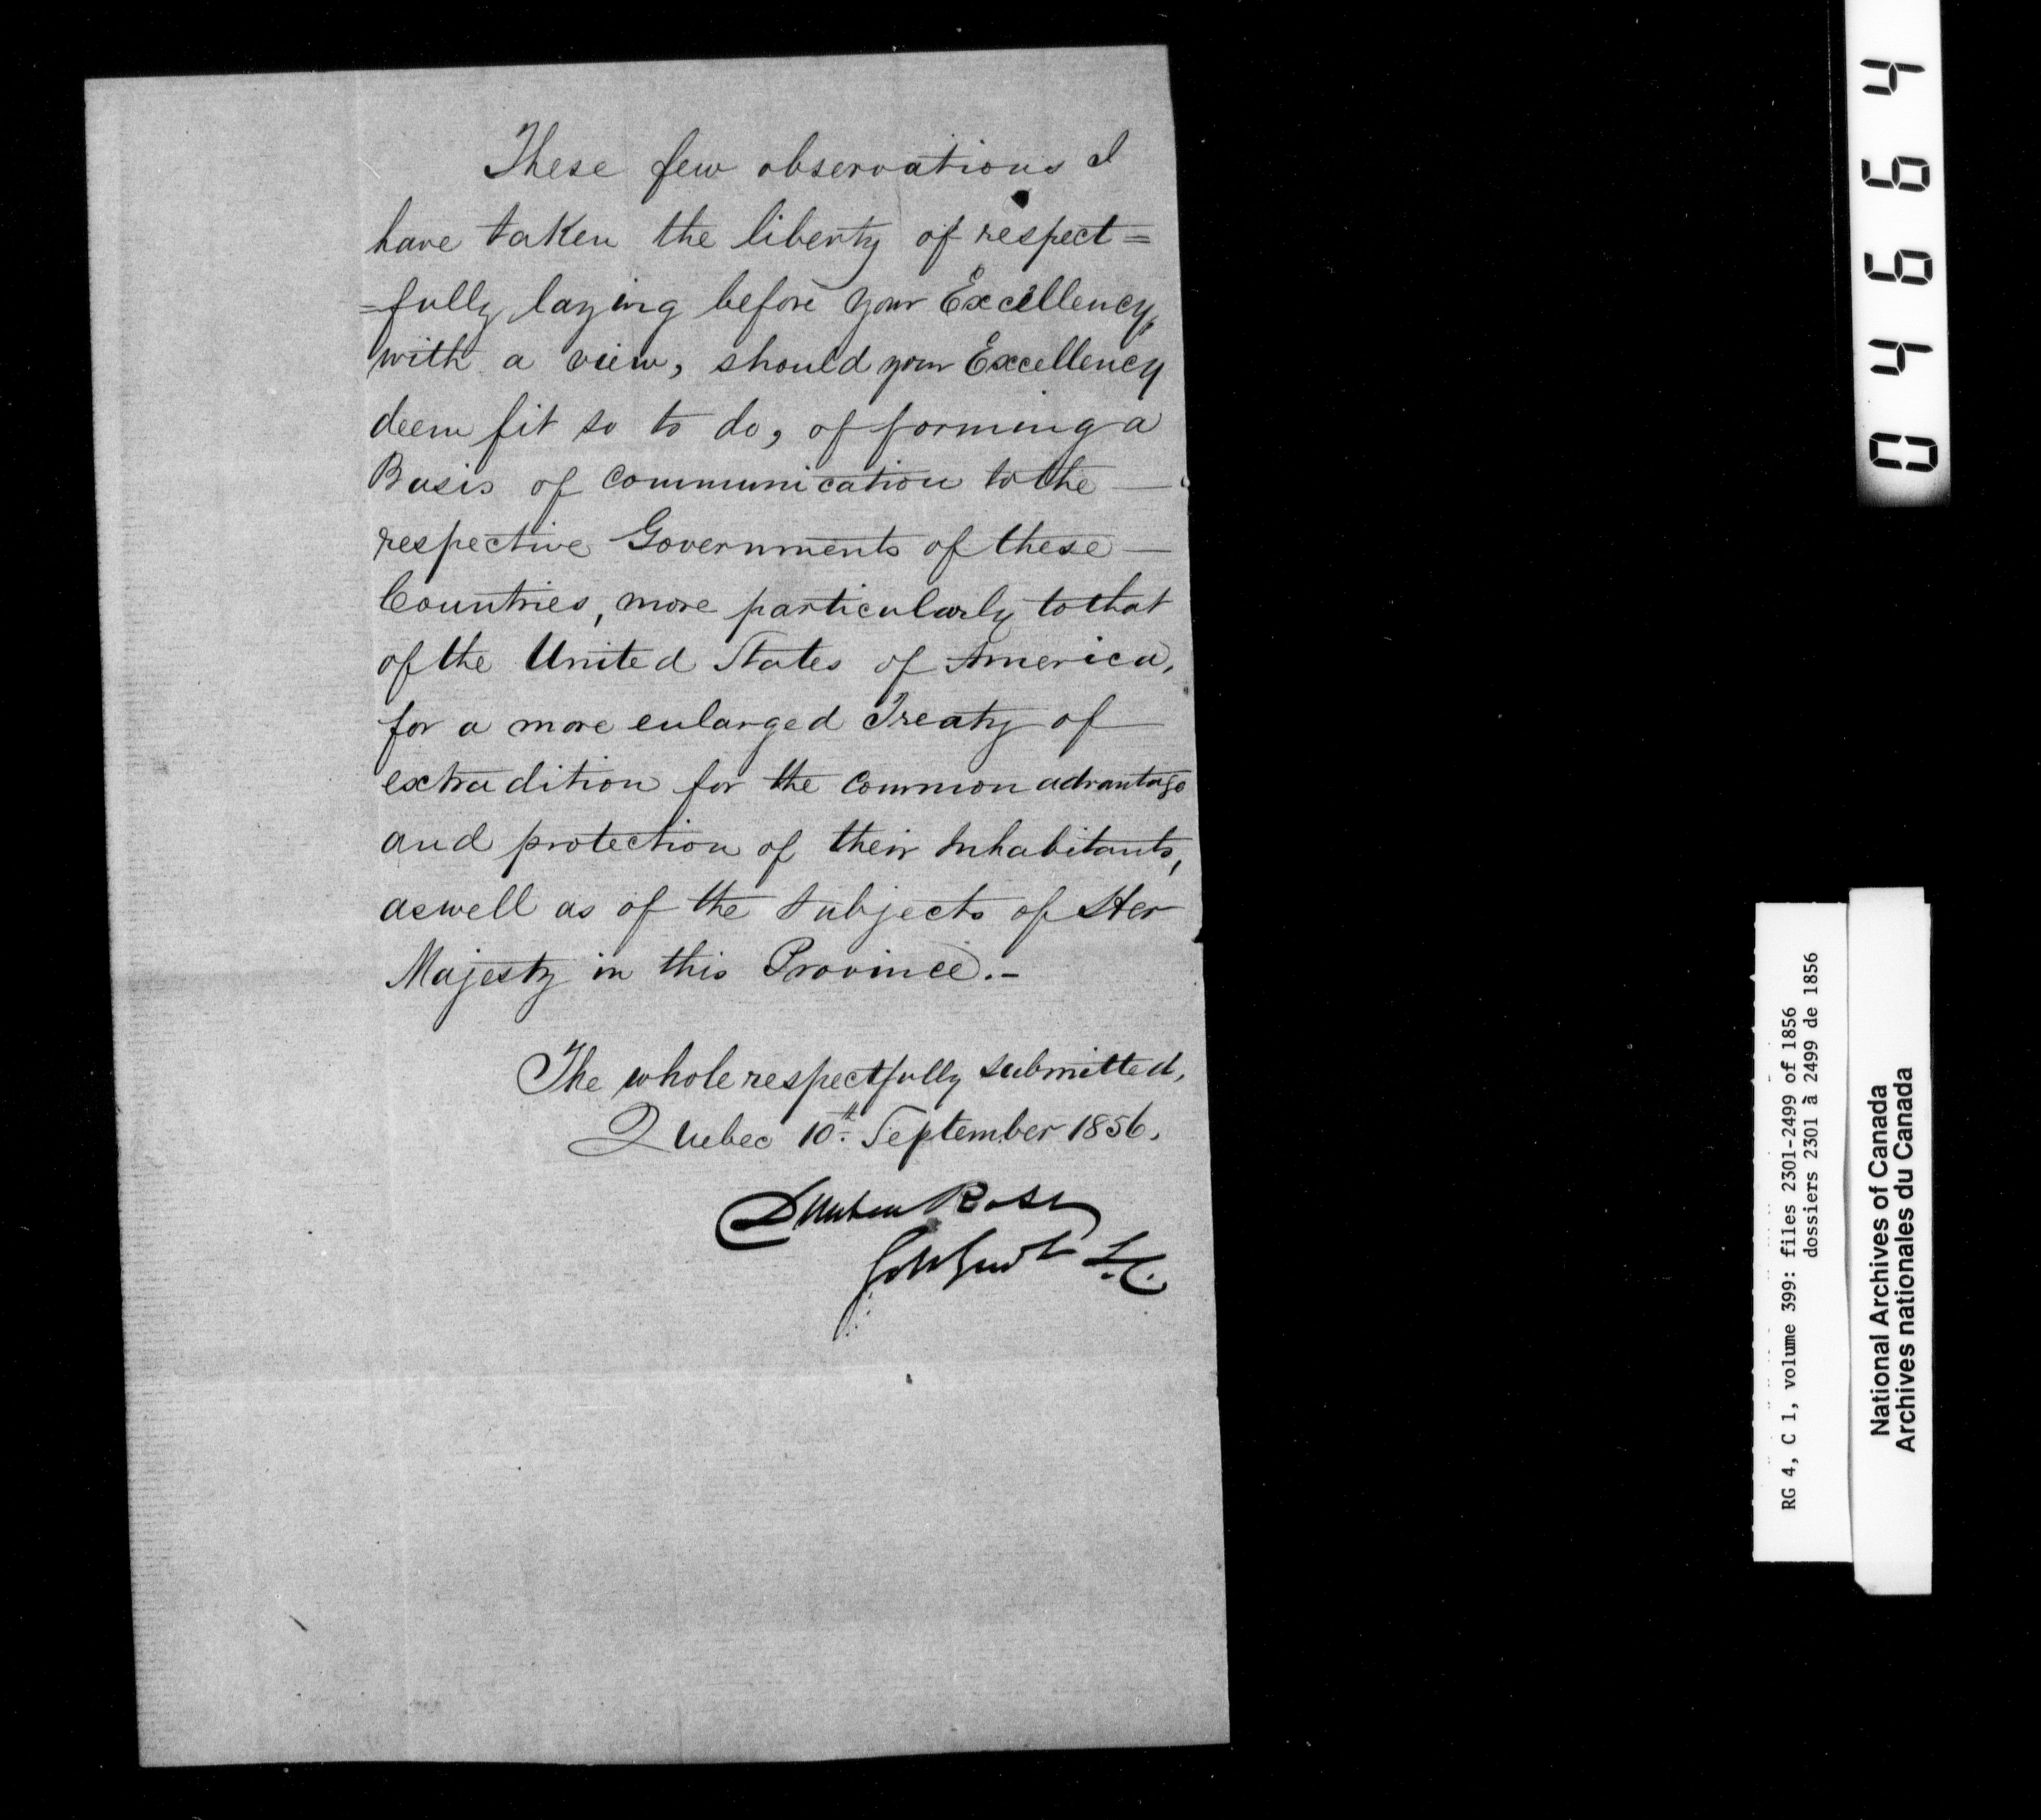 These few observations I
have taken the liberty of respect=
=fully laying before your Excellency,
with a view, should your Excellency
deem fit so to do, of forming a
Basis of communication to the —
respective Governments of these —
Countries, more particularly to that
of the United States of America,
for a more enlarged Treaty of
extradition for the common advantage
and protection of their Inhabitants,
aswell as of the Subjects of Her
Majesty in this Province.-
The whole respectfully submitted,
Quebec 10th September 1856.
Dunbar Ross
L.C.
04664
RG 4, C 1, volume 399: files 2301-2499 of 1856
dossiers 2301 à 2499 de 1856
National Archives of Canada
Archives nationales du Canada